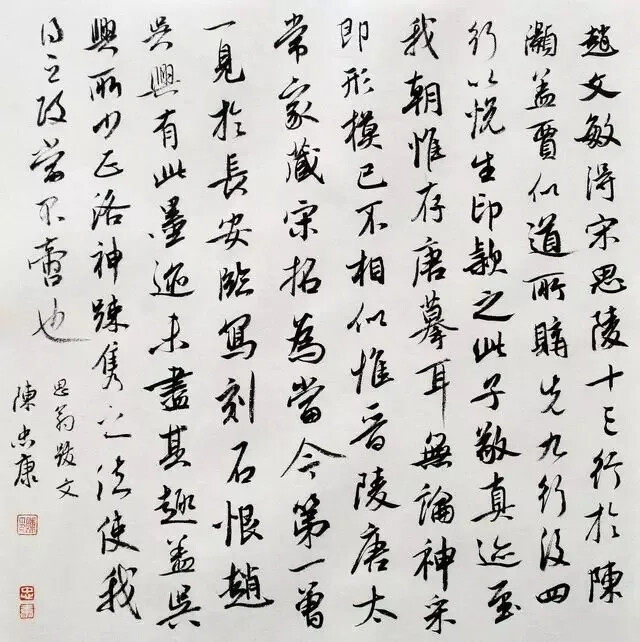 趙文敏得宋思陵十三行於陳
灝蓋賈似道所購先九行後四
行以悅生印款之此子敬真迹至
我朝惟存唐摹耳無論神采
即形模已不相似惟晉陵唐太
常家藏宋拓為當今第一曾
一見於長安臨寫刻石恨趙
吳興有此墨迹未盡其趣蓋吳
興所少正洛神踈雋之法使我
得之政當不啻也
思翁跋文
陳忠康